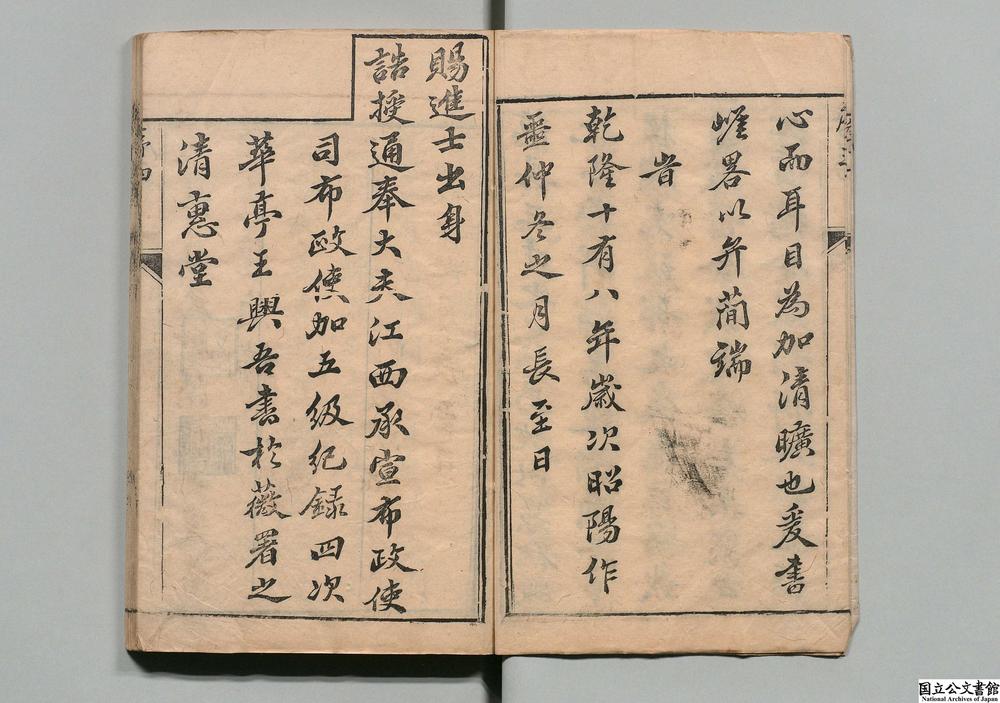 心而耳目為加清曠也爰書
崕畧以弁蕳端
旹
乾隆十有八年歲次昭陽作
噩仲冬之月長至日
賜進士出身
誥授通奉大夫江西承宣布政使
司布政使加五級紀録四次
華亭王興吾書於薇署之
清惠堂
国立公文書館
National Archives of Japan